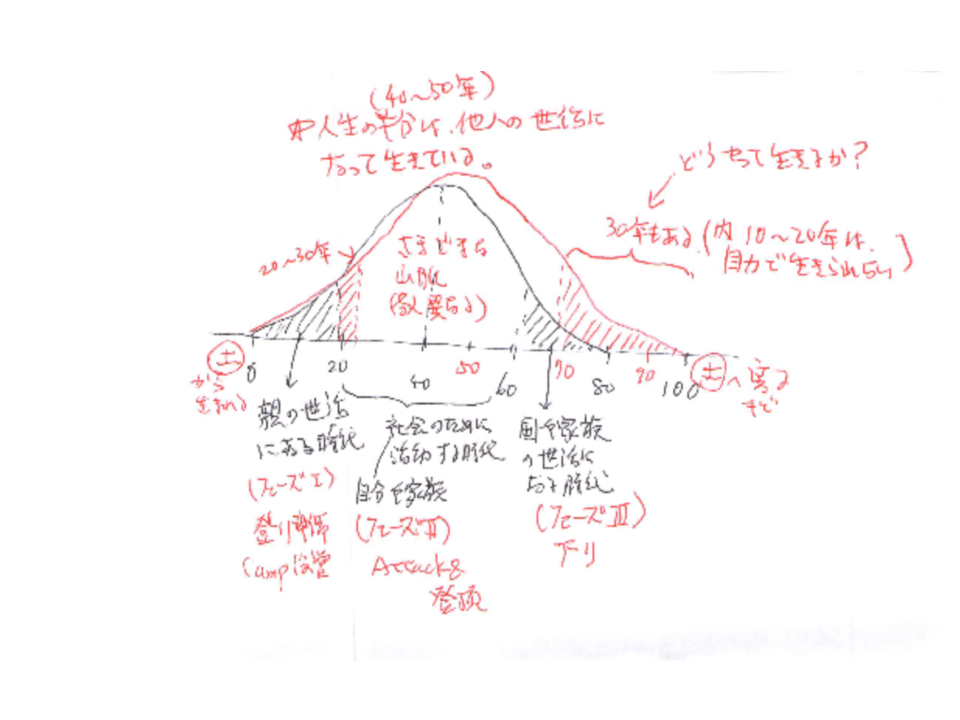 (40～50年)
人生の半分は、他人の世話に
なって生きている。
どうやって生きるか？
30年もある（内10～20年は、
自力で生きられない）
20～30年
さまざまな
山脈
土
から
生まれる
0
20
40
50
60
70
80
90
100
土へ寡る
まで
親の世話
になる時代
(フェーズI)
登り準備
Camp設営
社会のために
活動する時代
自分や家族
(フェーズII)
Attack&
登頂
国や家族
の世話に
なる時代
(フェーズIII)
下り